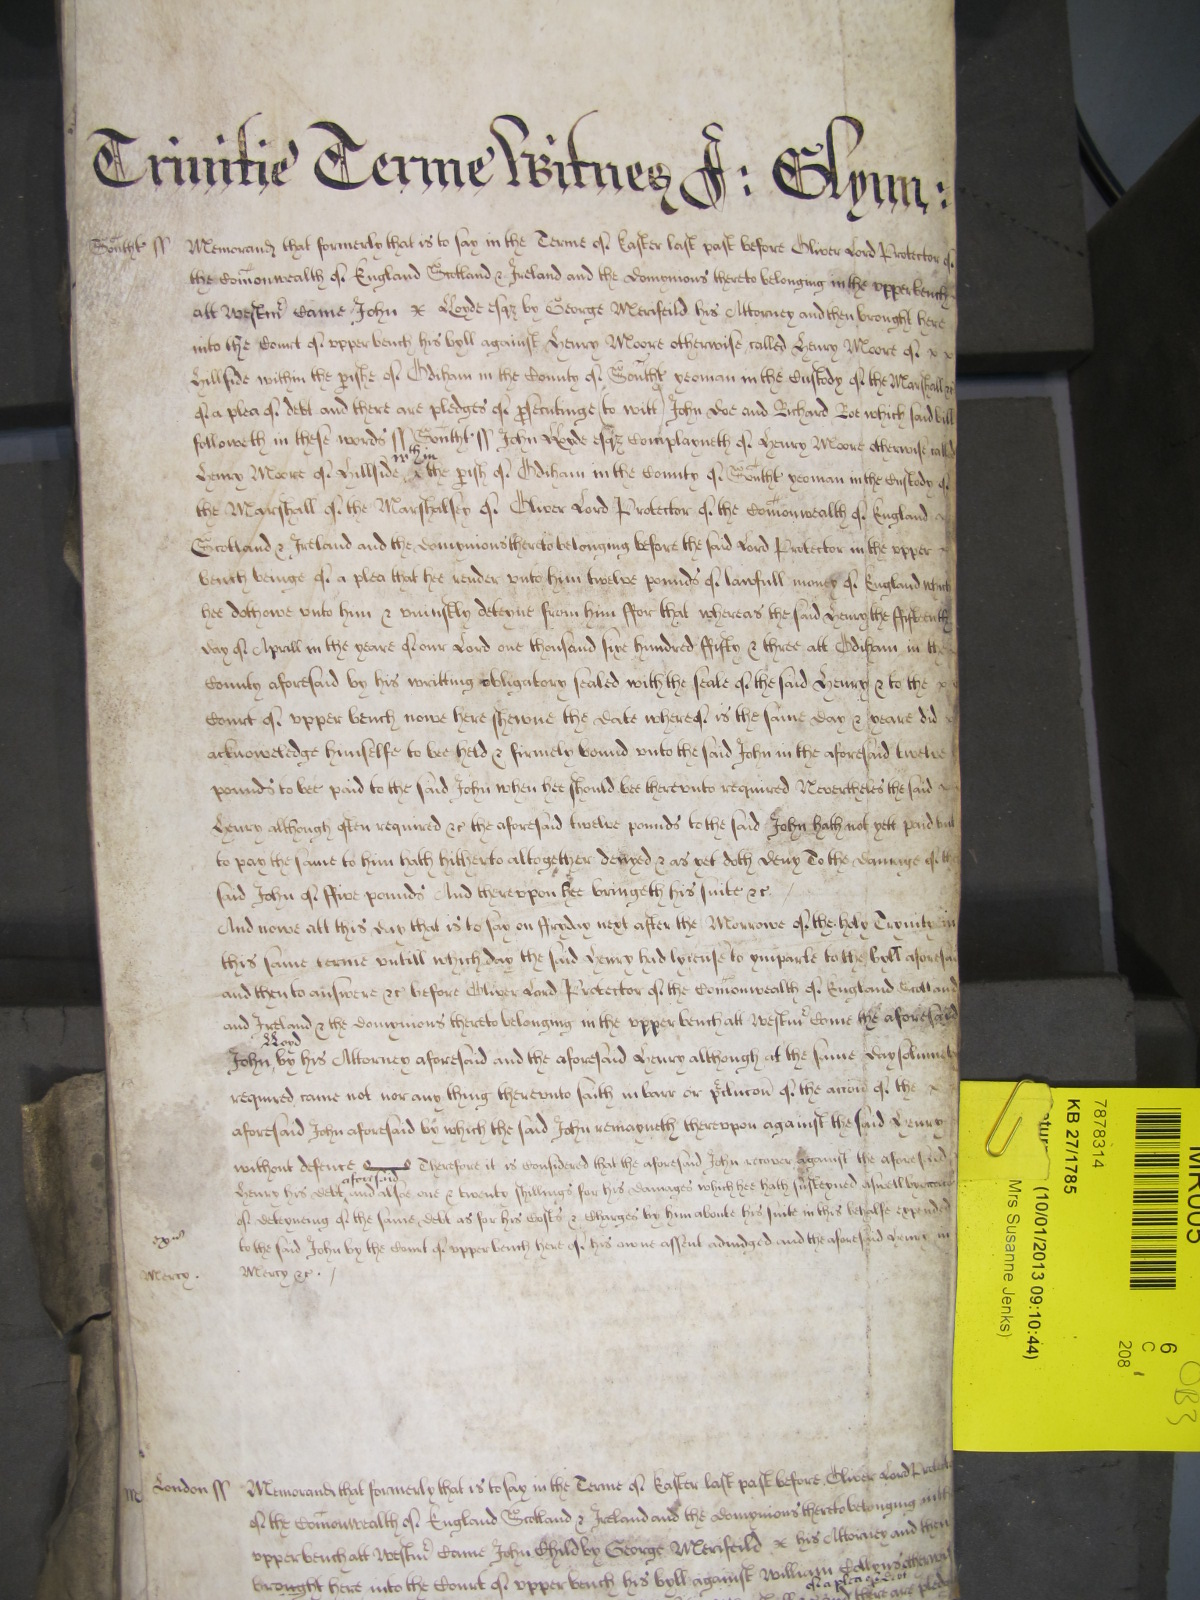 Trinitie Terme Witnes J: Glynn:
Southt ss Memorand that formerly that is to say in the Terme of Easter last past before Oliver Lord Protector of
the Comonwealth of England Scotland & Ireland and the Domynions thereto belonging in the upper bench
att Westmr Came John x Lloyde Esqz by George Merifeild his Attorney and then brought here
into the Court of upper bench his byll against Henry Moore otherwise called Henry Moore of x x
Hillside within the pishe of Odiham in the County of Southt yeoman in the Custody of the Marshall &c
of a plea of debt and there are pledges of psecutinge to witt John Doe and Richard Roe which said bill
followeth in these words ss Southt ss John Lloyde esqz Complayneth of Henry Moore otherwise called
Henry Moore of Hillside within the pish of Odiham in the County of Southt yeoman in the Custody of
the Marshall of the Marshalsey of Oliver Lord Protector of the Comonwealth of England
Scotland & Ireland and the Domynions thereto belonging before the said Lord Protector in the upper
bench beinge of a plea that hee render unto him twelve pounds of lawfull money of England which
hee doth owe unto him & uniustly deteyne from him ffor that whereas the said Henry the ffifteenth
day of Aprill in the yeare of our Lord one thousand sixe hundred ffifty & three att Odiham in the
County aforesaid by his writting obligatory sealed with the seale of the said Henry & to the x
Court of upper bench nowe here shewne the date whereof is the same day & yeare did
acknoweledge himselfe to bee held & firmely bound unto the said John in the aforesaid twelve
pounds to bee paid to the said John when hee should bee thereunto required Nevertheles the said
Henry although often required &c the aforesaid twelve pounds to the said John hath not yett paid but
to pay the same to him hath hitherto altogether denyed & as yet doth deny To the damage of the
said John of ffive pounds And thereupon hee bringeth his suite &c
And nowe att this day that is to say on ffryday next after the Morrowe of the holy Trynity in
this same terme untill which day the said Henry had lycense to ymparle to the byll aforesaid
and then to answere &c before Oliver Lord Protector of the Comonwealth of England Scotland
and Ireland & the Domynions thereto belonging in the upper bench att Westmr Come the aforesaid
John Lloyd by his Attorney aforesaid and the aforesaid Henry although at the same day solemnly
required came not nor any thing thereunto saith in barr or pclucon of the accon of the x
aforesaid John aforesaid by which the said John remayneth thereupon against the said Henry
without defence Therefore it is Considered that the aforesaid John recover against the aforesaid
Henry his debt aforesaid and alsoe one & twenty shillings for his damages which hee hath susteyned aswell by occasion
of deteyneing of the same debt as for his Costs & Charges by him aboute his suite in this behalfe expended
to the said John by the Court of upper bench here of his owne assent adiudged and the aforesaid Henry in
Mercy. Mercy &c.
London ss Memorand that formerly that is to say in the Terme of Easter last past before Oliver Lord Protector
of the Comonwealth of England Scotland & Ireland and the domynions thereto belonging in the
upper bench att Westmr Came John Child by George Merifeild x his Attorney and then
brought here into the Court of upper bench his byll against William Collyns otherwise
of a plea of debt
and there are pledges
MR005
6
C
208
7878314
KB 27/1785
(10/01/2013 09:10:44)
Mrs Susanne Jenks)